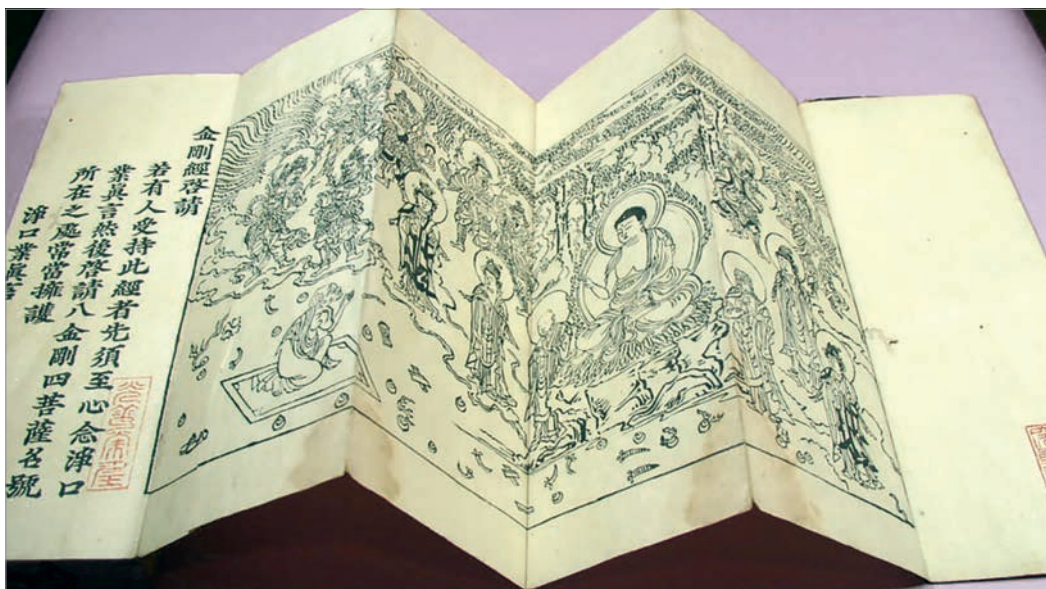 金剛經啓請
若有人受持此經者先須至心念淨口
業眞言然後啓請八金剛四菩薩名號
所在之處常當擁護
淨口業眞言